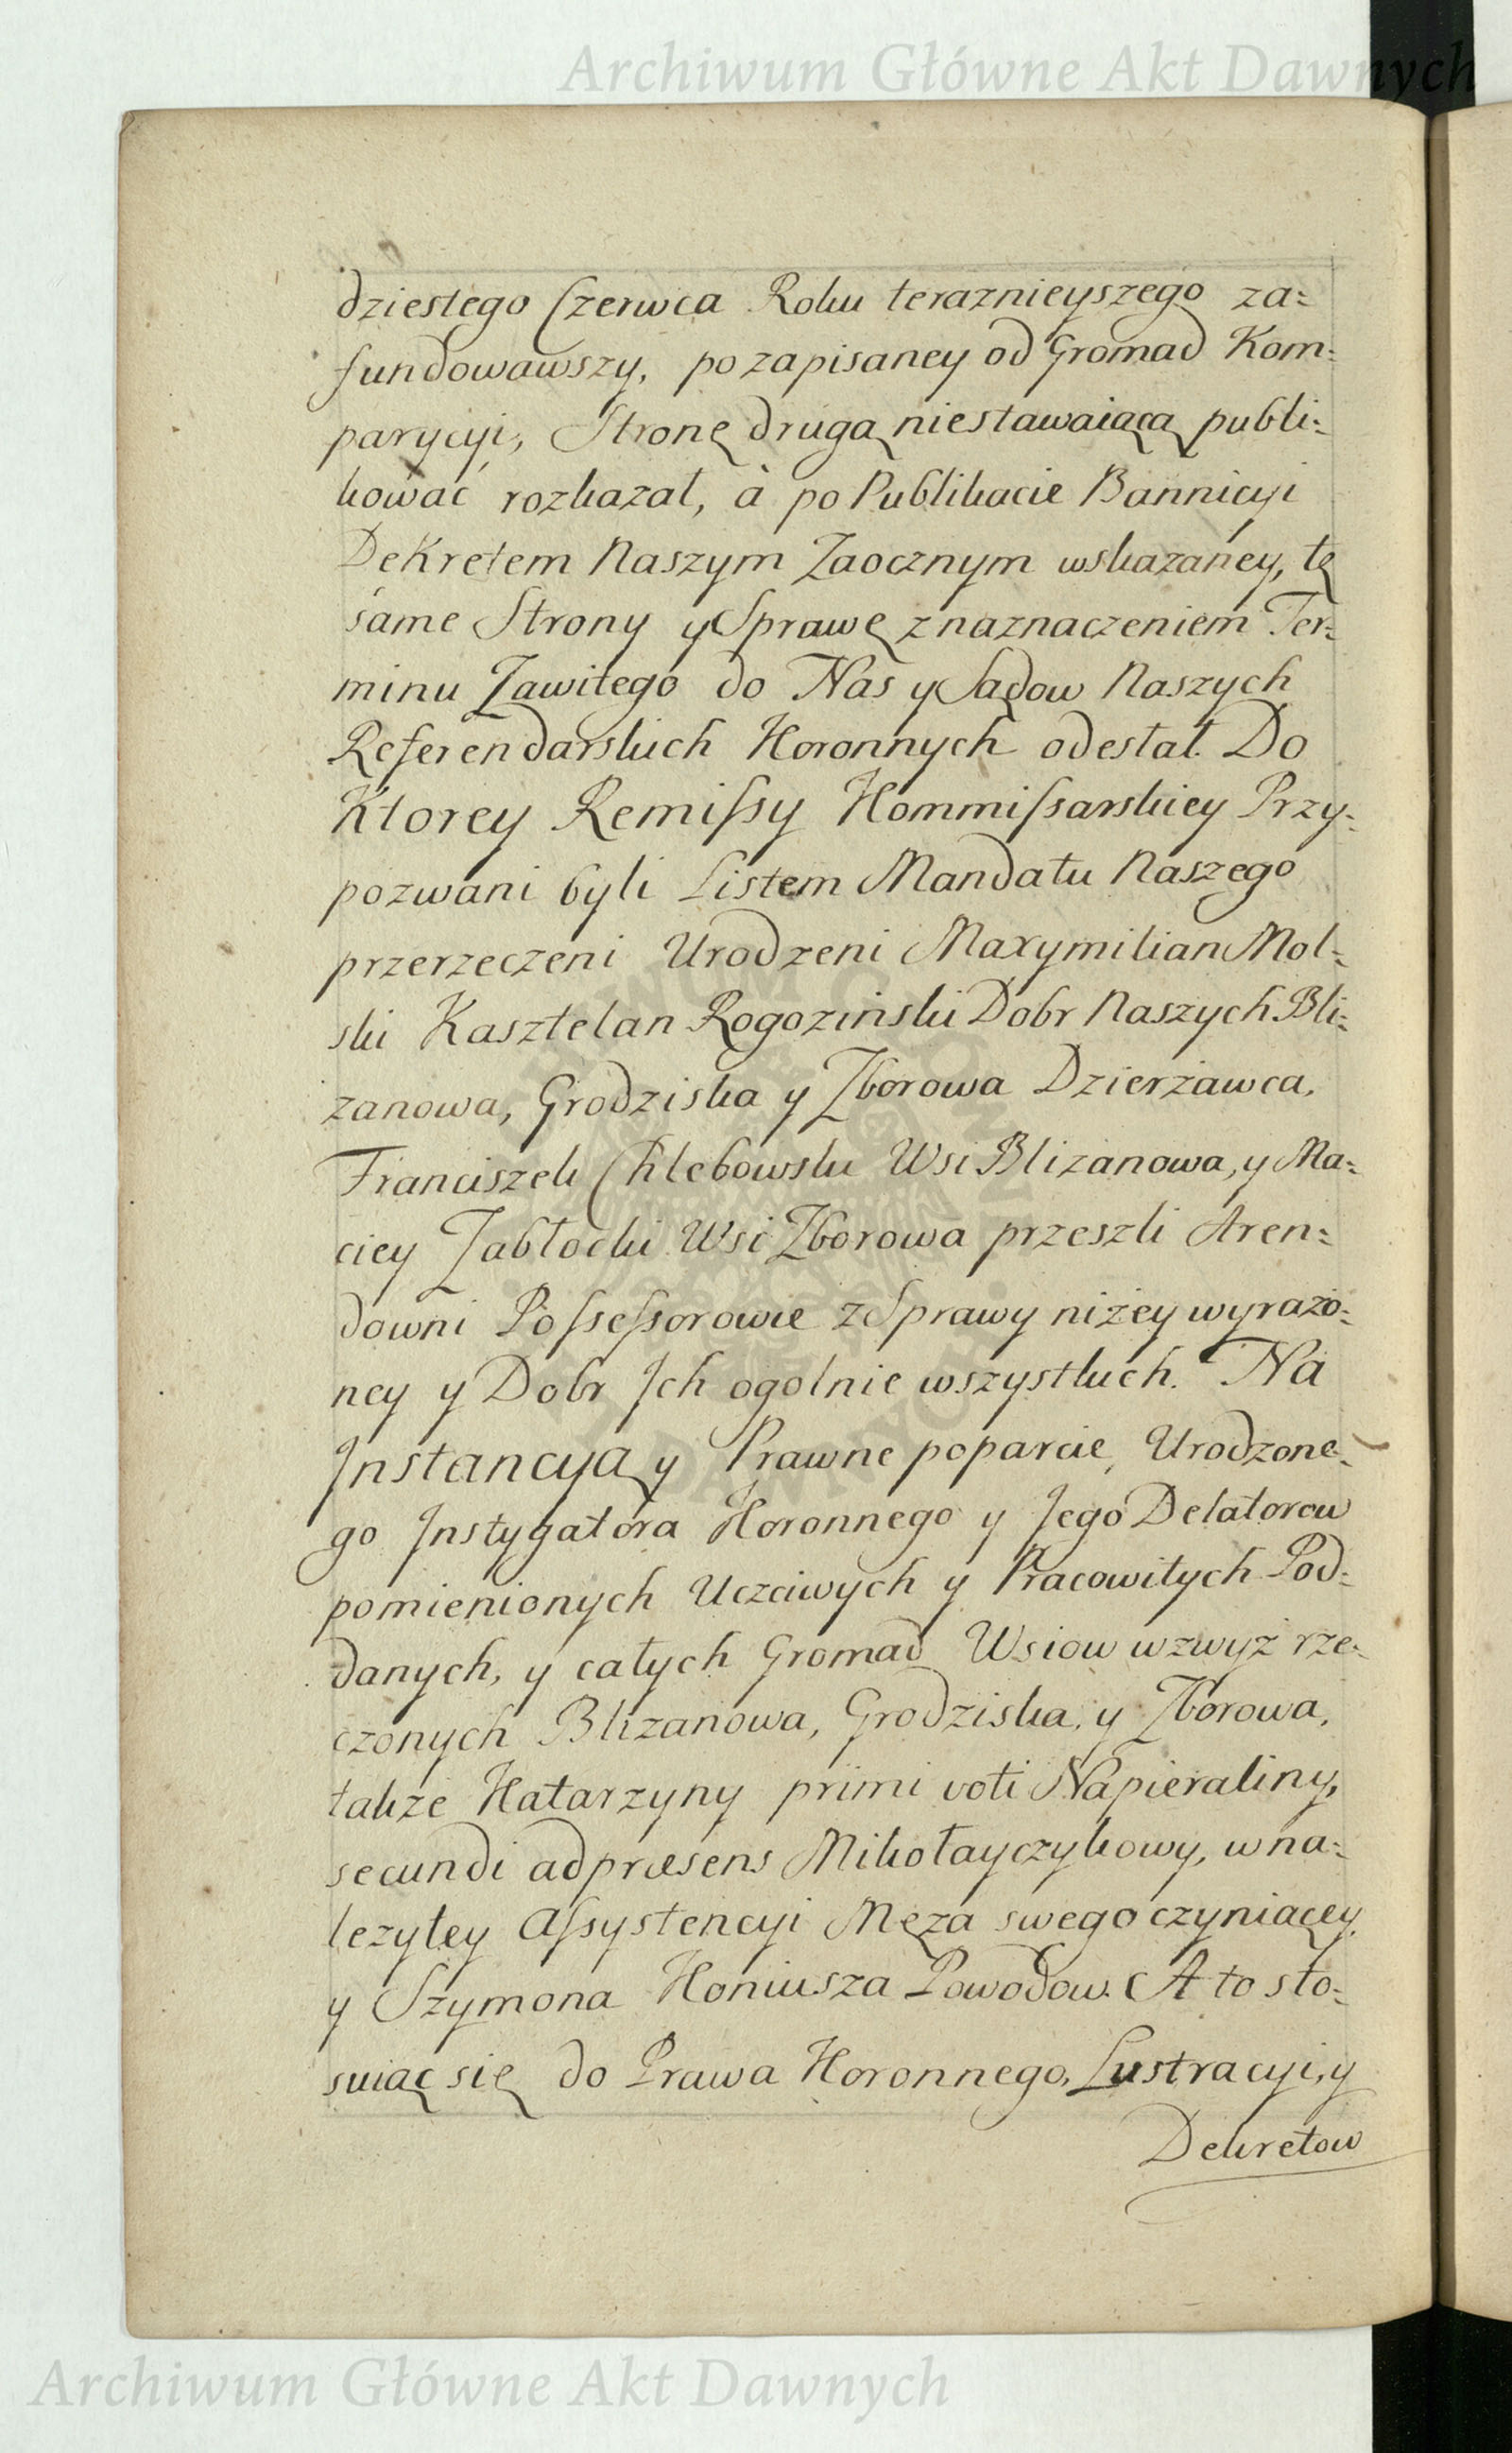 Archiwum Główne Akt Dawnych
dziestego Czerwca Roku teraznieyszego za=
fundowawszy, po zapisaney od Gromad Kom=
parycyi, Stronę drugą niestawaiącą publi=
kować rozkazał, à po Publikacie Bannicyi
Dekretem Naszym Zaocznym wskazaney, tę
same Strony y Sprawę z naznaczeniem Ter=
minu Zawitego do Nas y Sądow Naszych
Referendarskich Koronnych odesłał. Do
Ktorey Remiſsy Kommiſsarskiey Przy=
pozwani byli Listem Mandatu Naszego
przerzeczeni Urodzeni Maxymilian Mol=
ski Kasztelan Rogoziński Dobr Naszych Bli=
zanowa, Grodziska y Zborowa Dzierżawca,
Franciszek Chlebowski Wsi Blizanowa, y Ma=
ciey Zabłocki Wsi Zborowa przeszli Aren=
downi Poſseſsorowie z Sprawy niżey wyrażo=
ney y Dobr Ich ogolnie wszystkich. Na
Instancyą y Prawne poparcie, Urodzone=
go Instygatora Koronnego y Jego Delatorow
pomienionych Uczciwych y Pracowitych Pod=
danych, y całych Gromad Wsiow wzwyż rze=
czonych Blizanowa, Grodziska, y Zborowa,
także Katarzyny primi voti Napieraliny,
secundi ad præsens Mikołayczykowy, w na=
lezytey Aſsystencyi Męża swego czyniącey,
y Szymona Koniusza Powodow. A to sto=
suiąc się do Prawa Koronnego, Lustracyi, y
Dekretow
Archiwum Główne Akt Dawnych